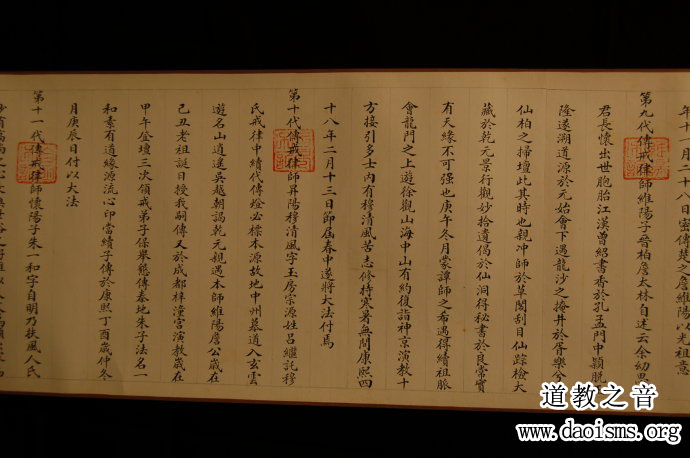 年十一月二十八日密傳楚之詹維陽以光祖意
第九代傳戒律師維陽子晉柏詹太林自述云余幼思
君長懷出世胞胎江漢曾紹書香於孔孟門中穎脫
隆遂溯道源於元始會下遇龍沙之
仙柏之掃壇此其時也親冲師於草閣刮目仙踪檢大
藏於乾元景行觀妙拾遺偈於仙洞得秘書於良常實
有天緣不可强也庚午冬月蒙譚師之看遇得續祖脈
會龍門之上遊徐觀山海中山有約復詣神京演教十
方接引多士内有穆清風苦志修持寒暑無間康熙四
十八年二月十三日節屆春中遂將大法付焉
第十代傳戒律師昇陽穆清風字玉房宗源姓吕繼託穆
氏戒律中續代傳燈必標本源故地中州慕道入玄雲
遊名山逍遙吳越朝謁乾元親遇本師維陽詹公歲在
己丑老祖誕日授我嗣傳又於成都梓潼宮演教歲在
甲午登壇三次領戒弟子保舉懇傳秦地朱子法名一
和素有道緣源流心印當續子傳於康熙丁酉歲仲冬
月庚辰日付以大法
第十一代傳戒律師懷陽子朱一和字自明乃扶風人氏
道教之音
www.daoisms.org